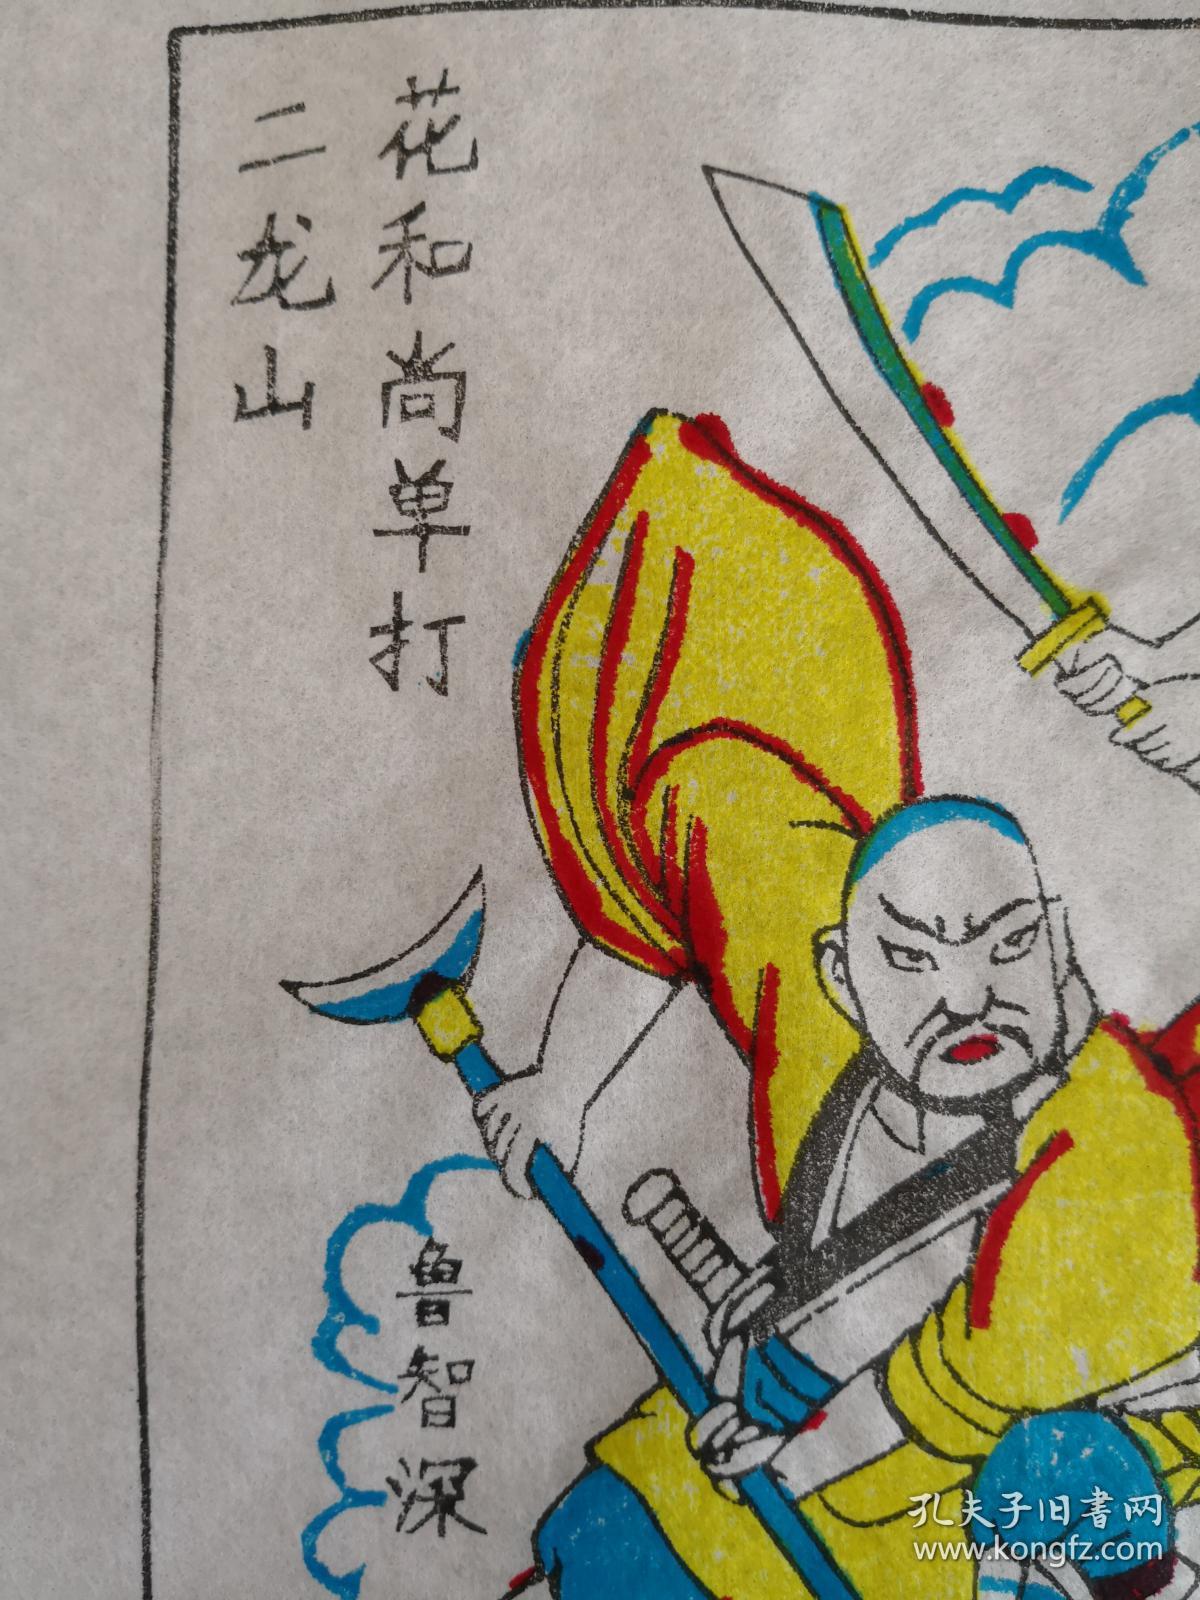 花和尚单打
二龙山
鲁智深
孔夫子旧書网
www.kongfz.com